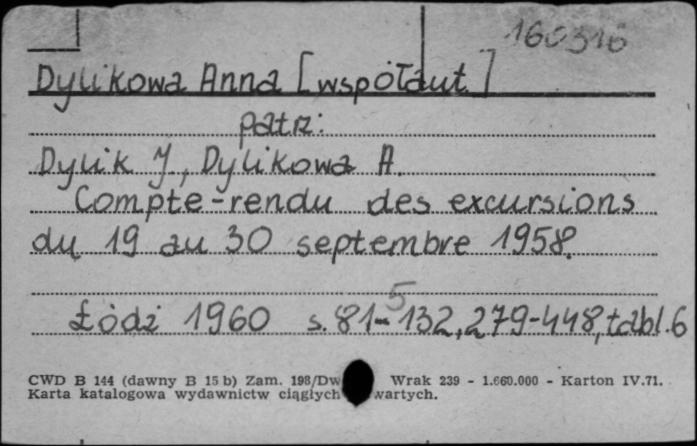 160316
Dylikowa Anna [współaut.]
patrz:
Dylik J., Dylikowa A.
Compte-rendu des excursions
du 19 au 30 septembre 1958.
5
Łódź 1960 s. 81-132, 279-448, tabl. 6
CWD B 144 (dawny B 15 b) Zam. 198/Dw Wrak 239 - 1.660.000 - Karton IV.71.
Karta katalogowa wydawnictw ciągłych wartych.